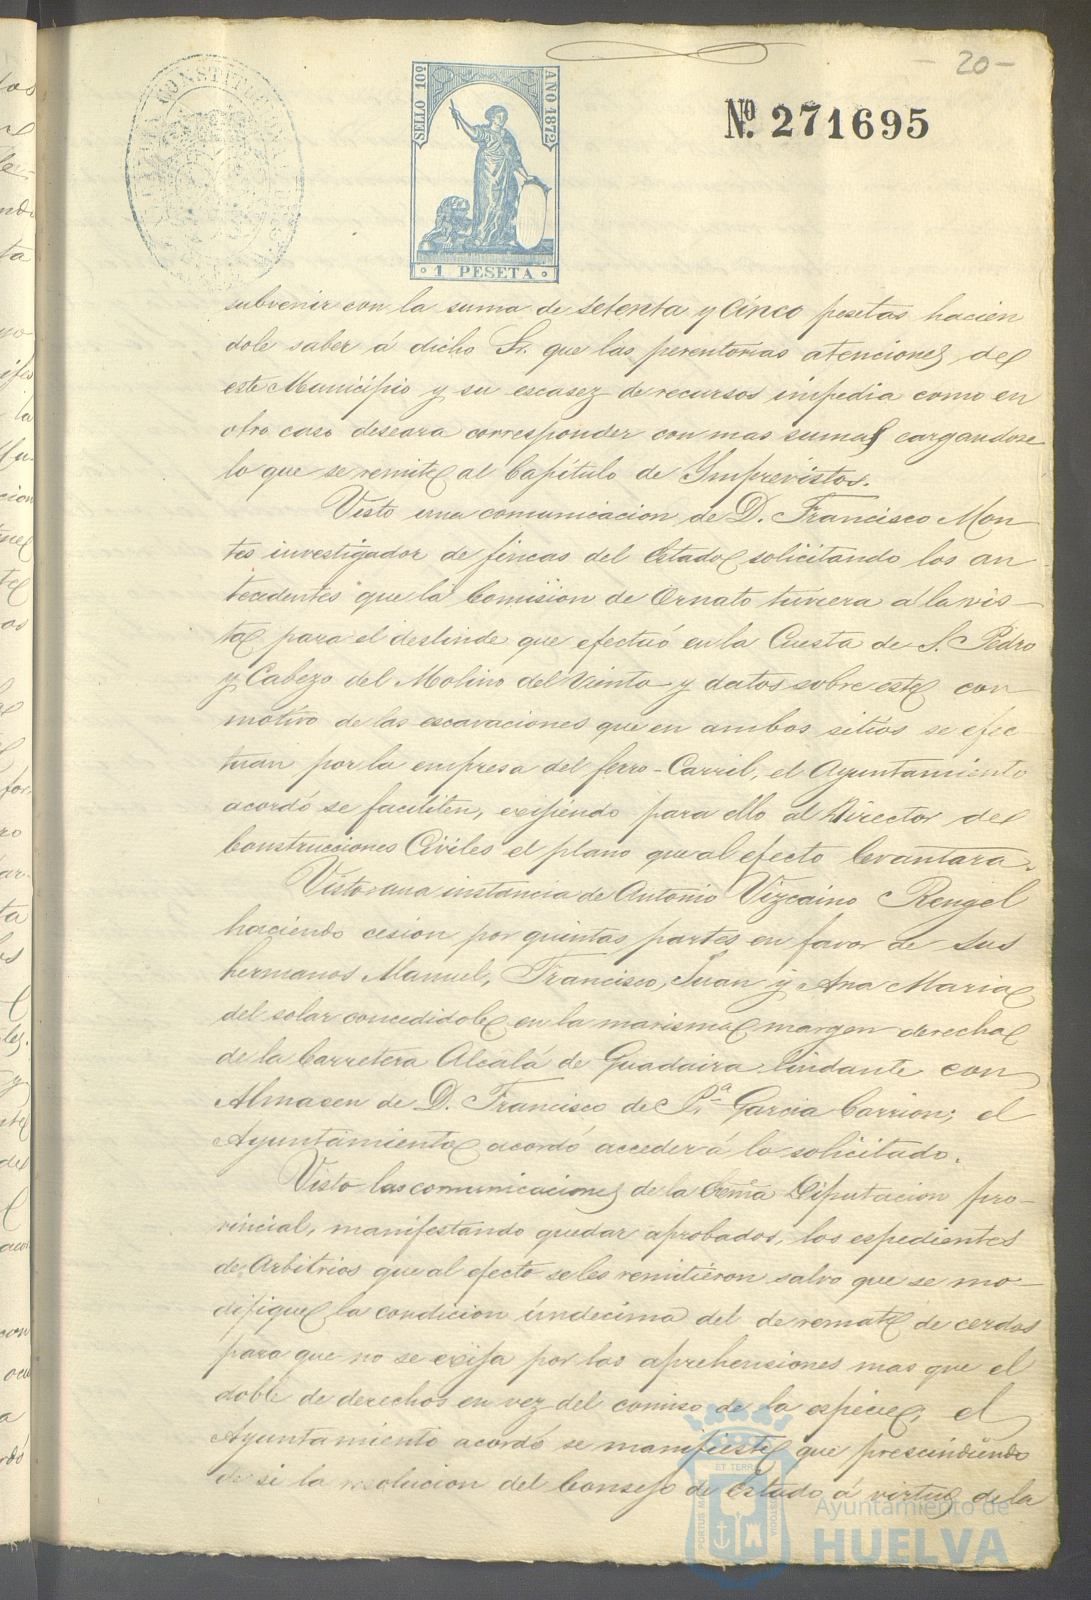 20
SELLO 10º
AÑO 1872
Nº 271695
1 PESETA
subvenir con la suma de setenta y cinco pesetas hacien
dole saber á dicho Sr. que las perentorias atenciones de
este Municipio y su escasez de recursos impedia como en
otro caso deseara corresponder con mas suma, cargandose
lo que se remite al Capítulo de Imprevistos.
Visto una comunicacion de D. Francisco Mon
tes investigador de fincas del Estado solicitando los an
tecedentes que la Comision de Ornato tuviera a la vis
ta para el deslinde que efectuó en la Cuesta de S. Pedro
y Cabezo del Molino del Viento y datos sobre este con
motivo de las escavaciones que en ambos sitios se efec
tuan por la empresa del ferro-Carril, el Ayuntamiento
acordó se faciliten, exijiendo para ello al Director de
Construcciones Civiles el plano que al efecto levantara.
Visto una instancia de Antonio Vizcaino Rengel
haciendo cesion por quintas partes en favor de sus
hermanos Manuel, Francisco, Juan y Ana Maria
del solar concedidole en la marisma margen derecha
de la Carretera Alcalá de Guadaira lindante con
Almacen de D. Francisco de P.ª Garcia Carrion; el
Ayuntamiento acordó acceder á lo solicitado.
Visto las comunicaciones de la Diputacion pro-
vincial, manifestando quedar aprobados, los espedientes
de Arbitrios que al efecto se les remitieron salvo que se mo-
difique la condicion úndecima del de remate de cerdos
para que no se exija por las aprehensiones mas que el
doble de derechos en vez del comiso de la especie, el
Ayuntamiento acordó se manifieste que prescindiendo
de si la resolucion del Consejo de Estado á virtud de la
PORTUS MARIS
ET TERRÆ
CUSTODIA
Ayuntamiento de
HUELVA